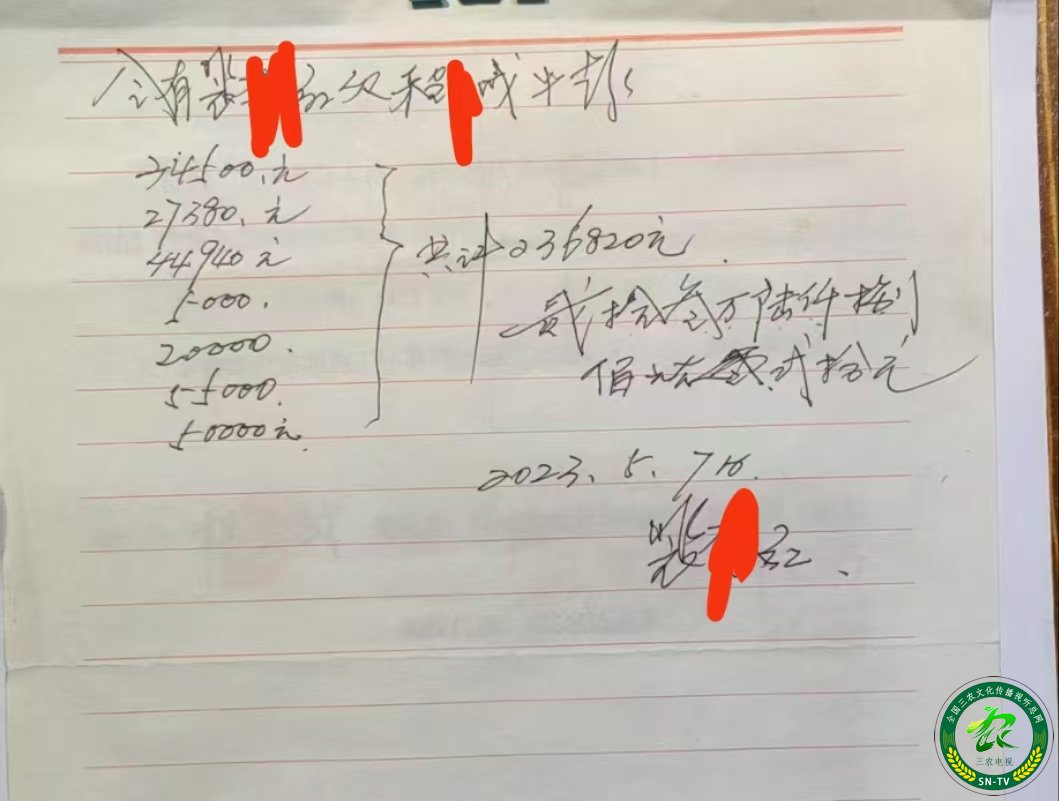 今有裴 红欠程 成牛款
34500.元
27380.元
44940元
5000.
20000.
55000.
50000元.
共计236820元.
贰拾叁万陆仟捌
佰 贰拾元
2023.5.7日.
裴 红.
全国三农文化传播视听总网
农
三农电视
SN-TV